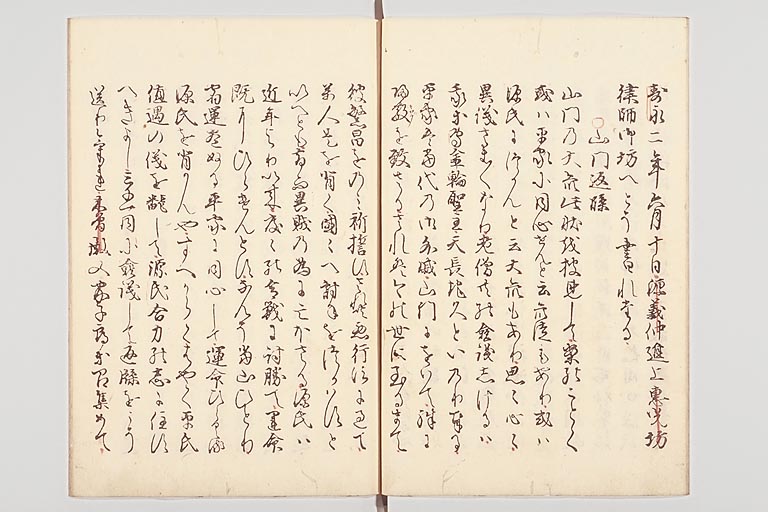 寿永二年六月十日源義仲進上恵光坊
律師御坊へとそ書れたる
山門返牒
山門の大衆此状を披見して案のことく
或ハ平家に同心せんと云衆徒もあり或ハ
源氏につかんと云大衆もあり思々心々
異儀さま〱なり老僧共の僉議しけるハ
我等専金輪聖主天長地久といのり奉る
平家は当代の御外戚山門にをいて殊に
帰敬を致さるされは今の世に至るまて
彼繁昌をのみ祈誓ひされ共悪行法に過て
万人是を背く国々へ討手をつかハすと
いへとも却而異賊の為にほろほさる源氏ハ
近年より以来度々の合戦に討勝て運命
既にひらけんとすなんそ当山ひとり
宿運尽ぬる平家に同心して運命ひらくる
源氏を背かんやすへからくまやく平氏
値遇の儀を翻して源氏合力の志に住す
へきよし三千一同に僉議して返牒をこそ
送りけれ木曽殿又家子郎等召集めて